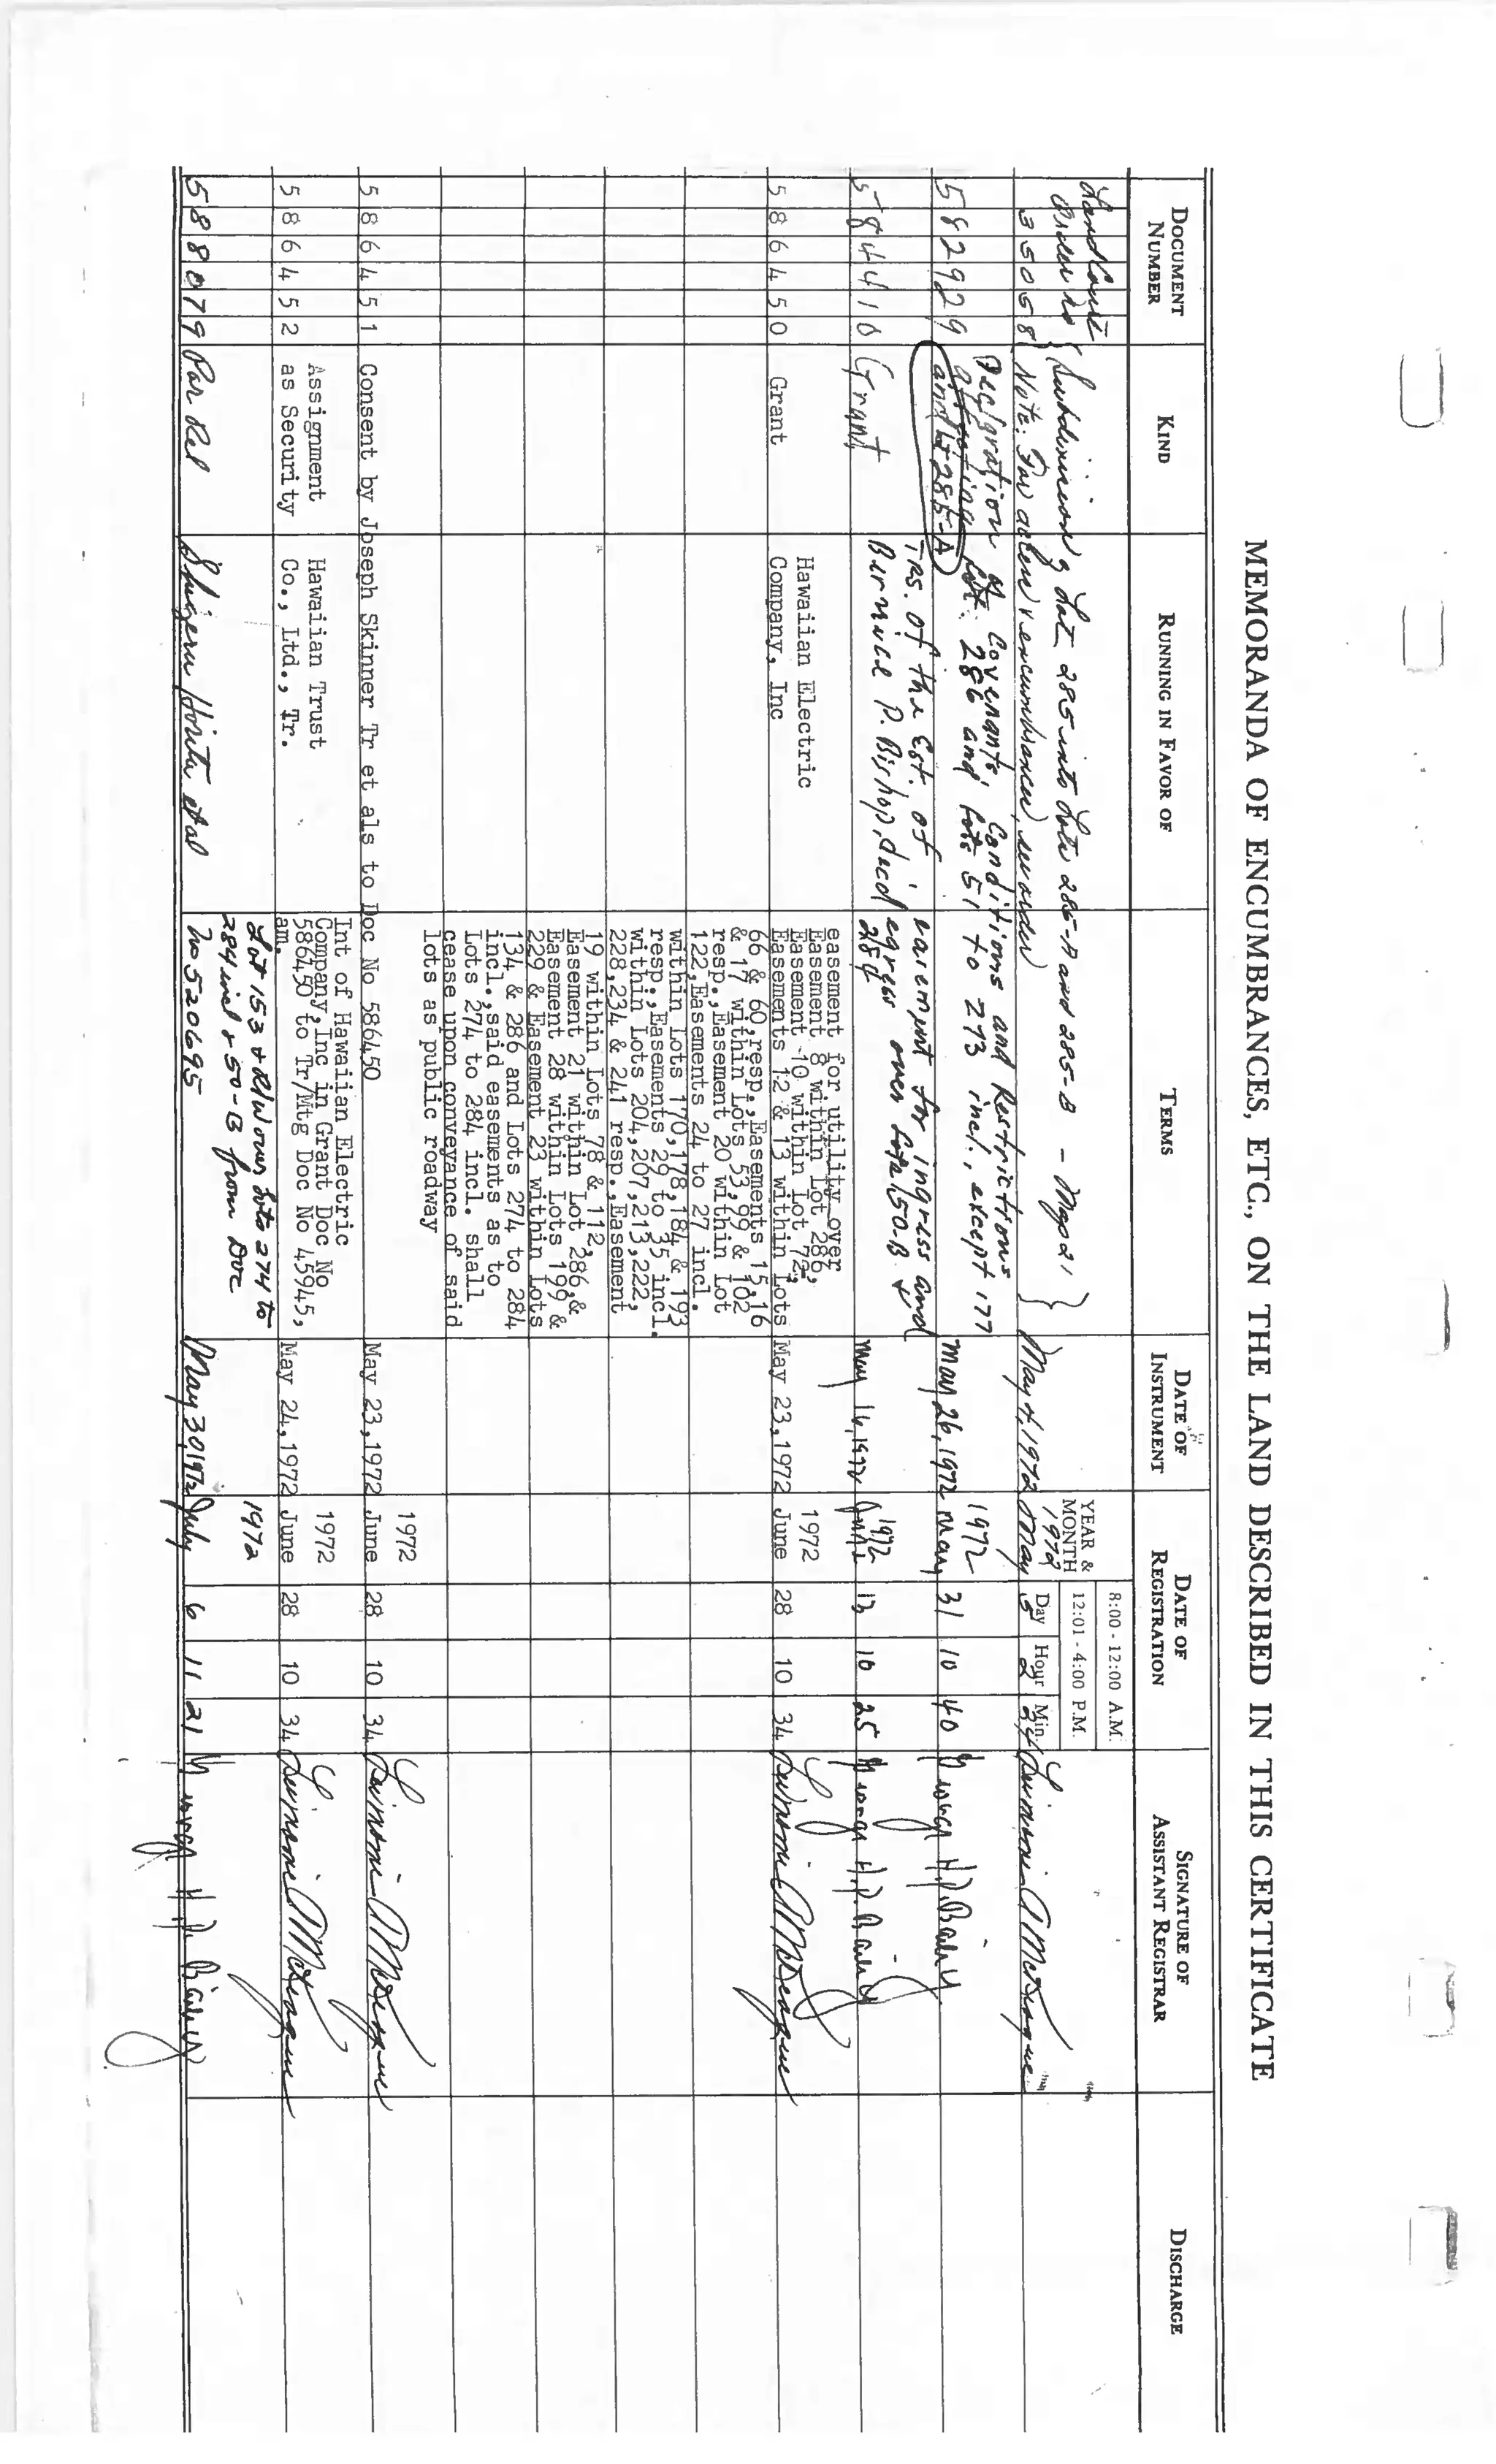 MEMORANDA OF ENCUMBRANCES, ETC., ON THE LAND DESCRIBED IN THIS CERTIFICATE
DOCUMENT NUMBER
KIND
RUNNING IN FAVOR OF
TERMS
DATE OF INSTRUMENT
DATE OF REGISTRATION
YEAR & MONTH
8:00 - 12:00 A.M.
12:01 - 4:00 P.M.
Day
Hour
Min.
SIGNATURE OF ASSISTANT REGISTRAR
DISCHARGE
Land Court
Order No
35058
Subdivision of Lot 285 into Lots 285-A and 285-B - Map 21
Note: For encumbrances, see order
May 4, 1972
1972
May 5 2 34
582929
Declaration of Covenants, Conditions and Restrictions
affecting Lot 286 and Lots 51 to 273 incl., except 177
and Lt 285-A
May 26, 1972
1972
May 31 10 40
George H.P. Bailey
584410
Grant
Trs. of the Est. of
Bernice P. Bishop, decd
easement for ingress and
egress over Lots 150-B &
284
May 16, 1972
1972
June 13 10 25
George H.P. Bailey
586450
Grant
Hawaiian Electric
Company, Inc
easement for utility over
Easement 8 within Lot 286,
Easement 10 within Lot 72,
Easements 12 & 13 within Lots
66 & 60,resp.,Easements 15,16
& 17 within Lots 53,99 & 102
resp.,Easement 20 within Lot
122,Easements 24 to 27 incl.
within Lots 170,178,184 & 193
resp.,Easements 29 to 35 incl.
within Lots 204,207,213,222,
228,234 & 241 resp.,Easement
19 within Lots 78 & 112,
Easement 21 within Lot 286,&
Easement 28 within Lots 199 &
229 & Easement 23 within Lots
134 & 286 and Lots 274 to 284
incl.,said easements as to
Lots 274 to 284 incl. shall
cease upon conveyance of said
lots as public roadway
May 23,1972
1972
June 28 10 34
586451
Consent by Joseph Skinner Tr et als to Doc No 586450
May 23,1972
1972
June 28 10 34
586452
Assignment
as Security
Hawaiian Trust
Co., Ltd., Tr.
Int of Hawaiian Electric
Company,Inc in Grant Doc No
586450 to Tr/Mtg Doc No 45945,
am.
May 24,1972
1972
June 28 10 34
588079
Par Rel
Shigeru Horita et al
Lot 153 & R/W over Lots 274 to
284 incl & 50-B from Doc
No 520695
May 30 1972
1972
July 6 11 21
George H.P. Bailey